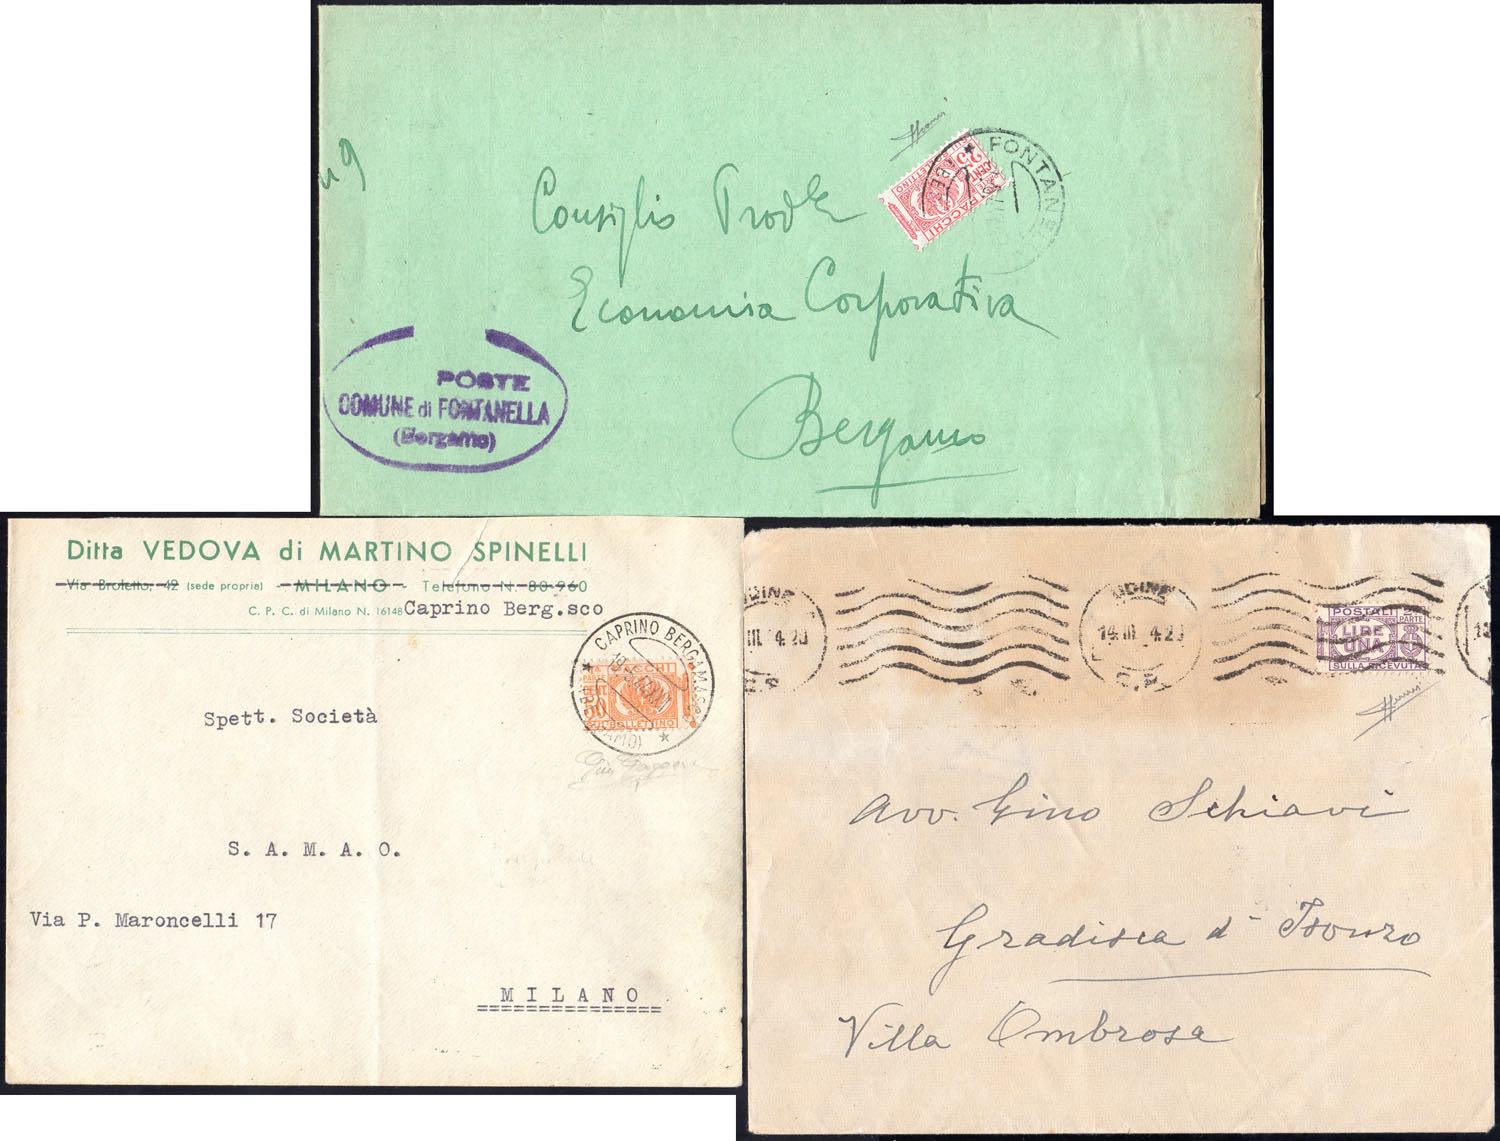 n 9
Consiglio Prov.le
Economia Corporativa
Bergamo
* FONTANE
25
CENT
PACCHI
BOLLETTINO
POSTE
COMUNE di FONTANELLA
(Bergamo)
Ditta VEDOVA di MARTINO SPINELLI
Via Broletto, 42 (sede propria) - MILANO - Telefono N. 80-960
C. P. C. di Milano N. 16148 Caprino Berg.sco
* CAPRINO BERGAMASC
PACCHI
PARTE
CENT
50
SUL BOLLETTINO
Spett. Società
S. A. M. A. O.
Via P. Maroncelli 17
MILANO
UDINE
14. III. 4. 20
C.P.
POSTALI 2
PARTE
LIRE
UNA
SULLA RICEVUTA
Avv. Gino Schiavi
Gradisca d'Isonzo
Villa Ombrosa